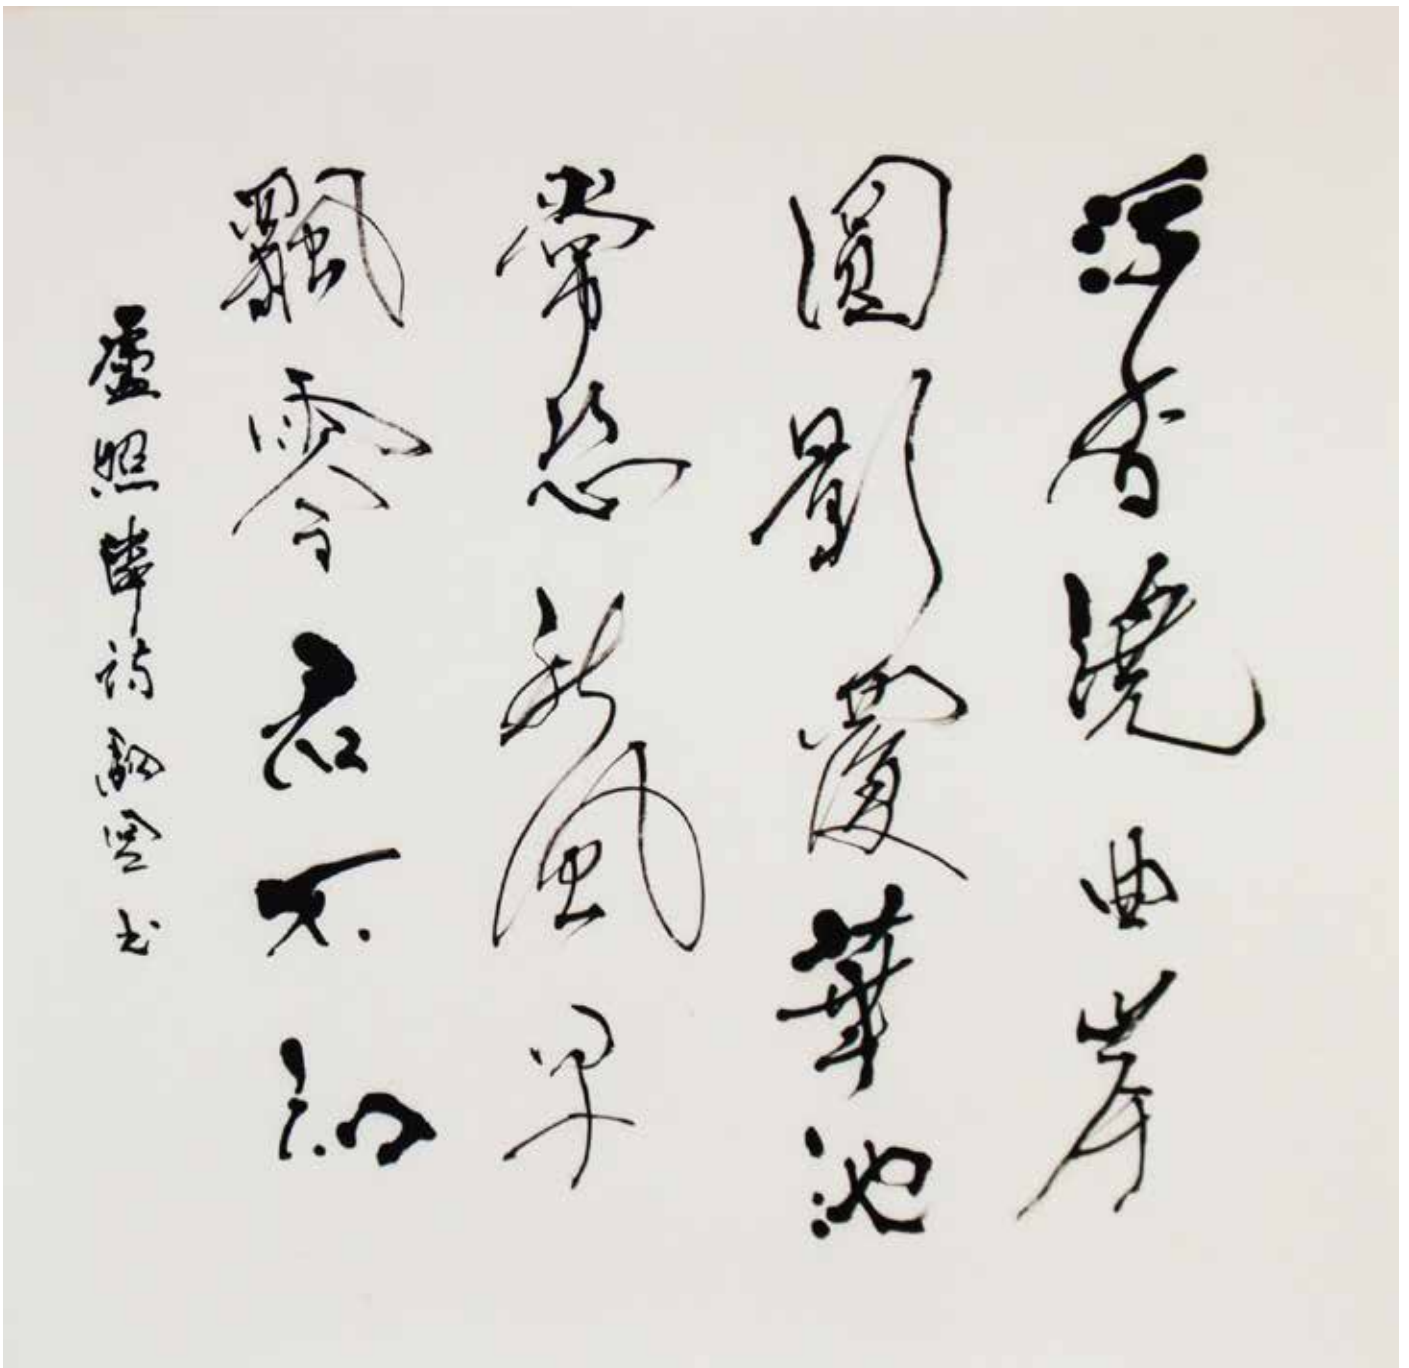 浮香繞曲岸
圓影覆華池
常恐秋風早
飄零君不知
盧照隣詩 书